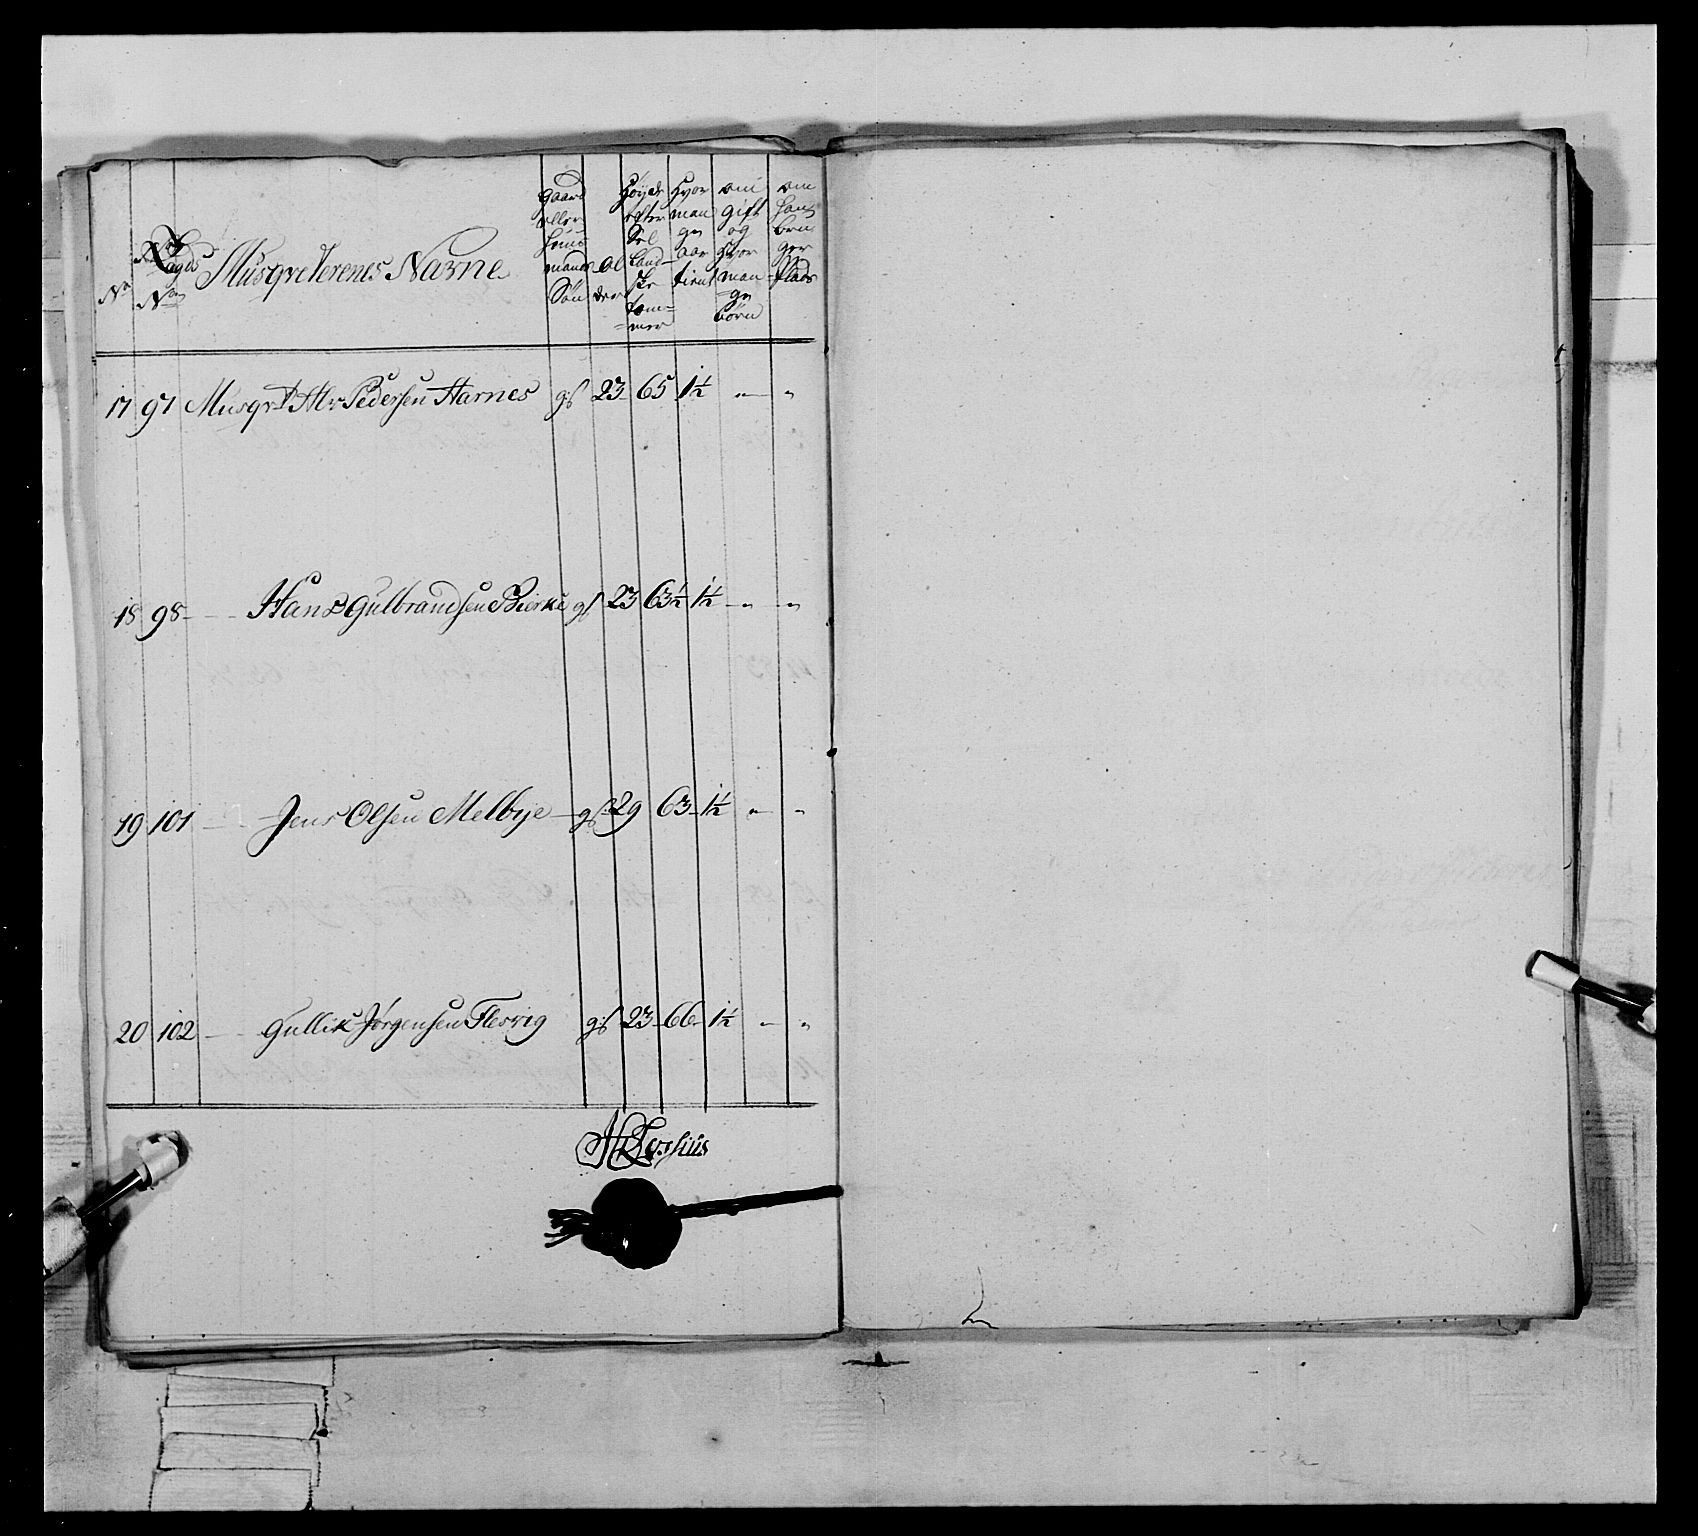 No
Lægds No
Musqveterenes Navne
Gaard eller Huus mands Søn
Al der
Høyde efter Sel Land ske tom= mer
Hvor man ge aar tient
om gift og hvor man =ge børn
om han bru ger Plads
17 97 Musqvt Ole Pedersen Harnes gs 23 65 1½ " "
18 98 - - Hans Gulbrandsen Bierke gs 23 63½ 1½ " "
19 101 - - Jens Olsen Melbye gs 29 63 1½ " "
20 102 - - Gullik Jørgensen Flesvig gs 23 66 1½ " "